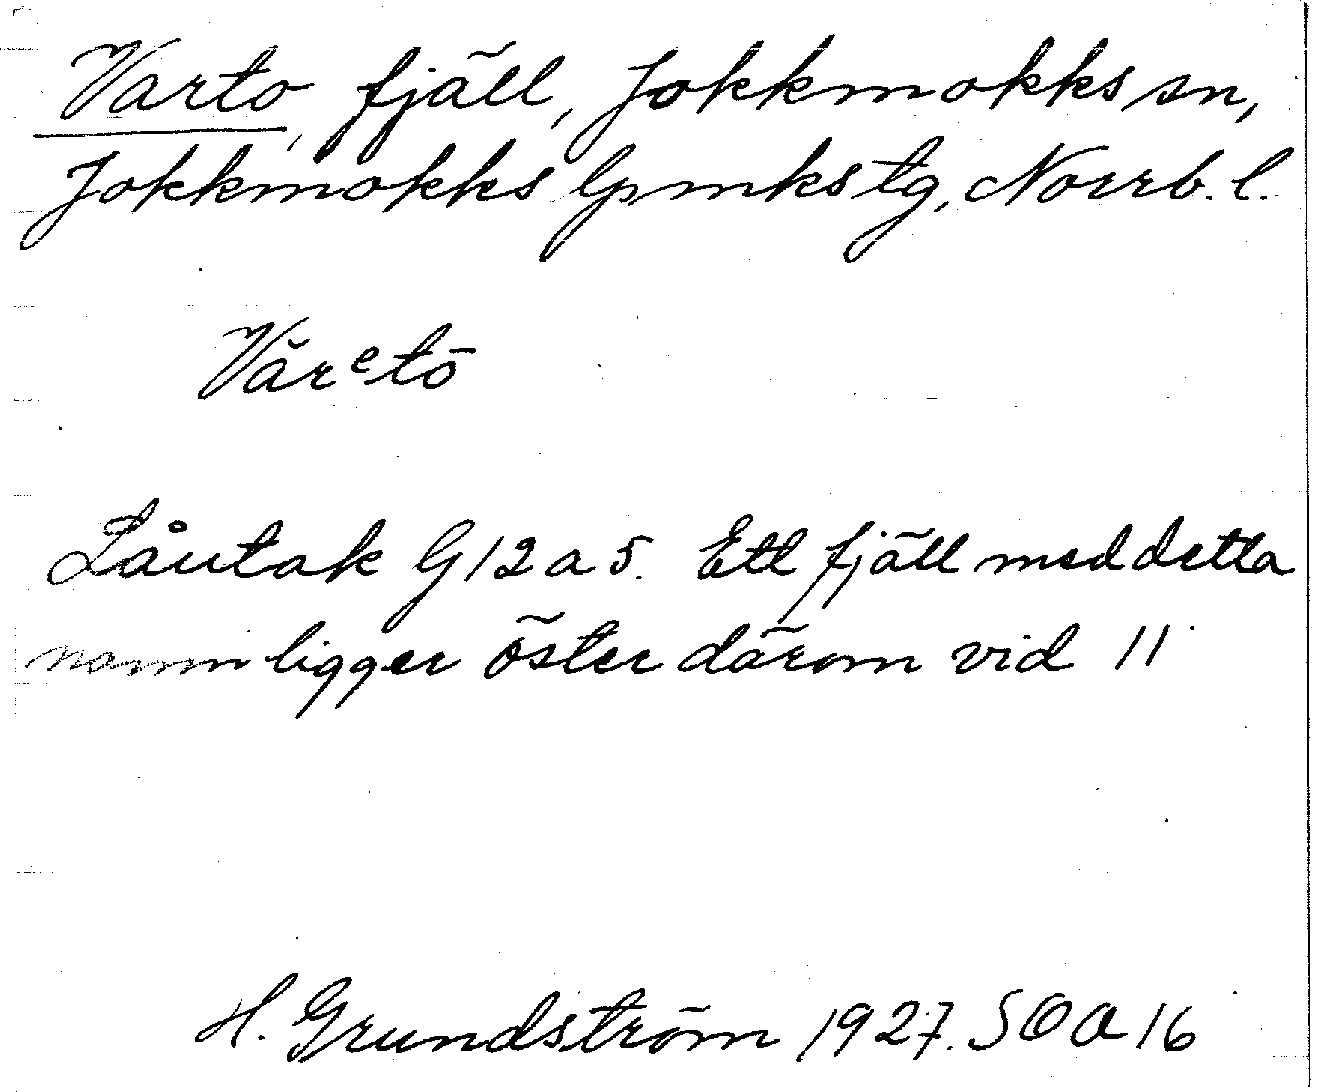 Varto, fjäll, Jokkmokks sn,
Jokkmokks lpmkstg, Norrb. l.
Vărᵉtō
Låutak G12a5. Ett fjäll med detta
namn ligger öster därom vid 11
H. Grundström 1927. SOA16